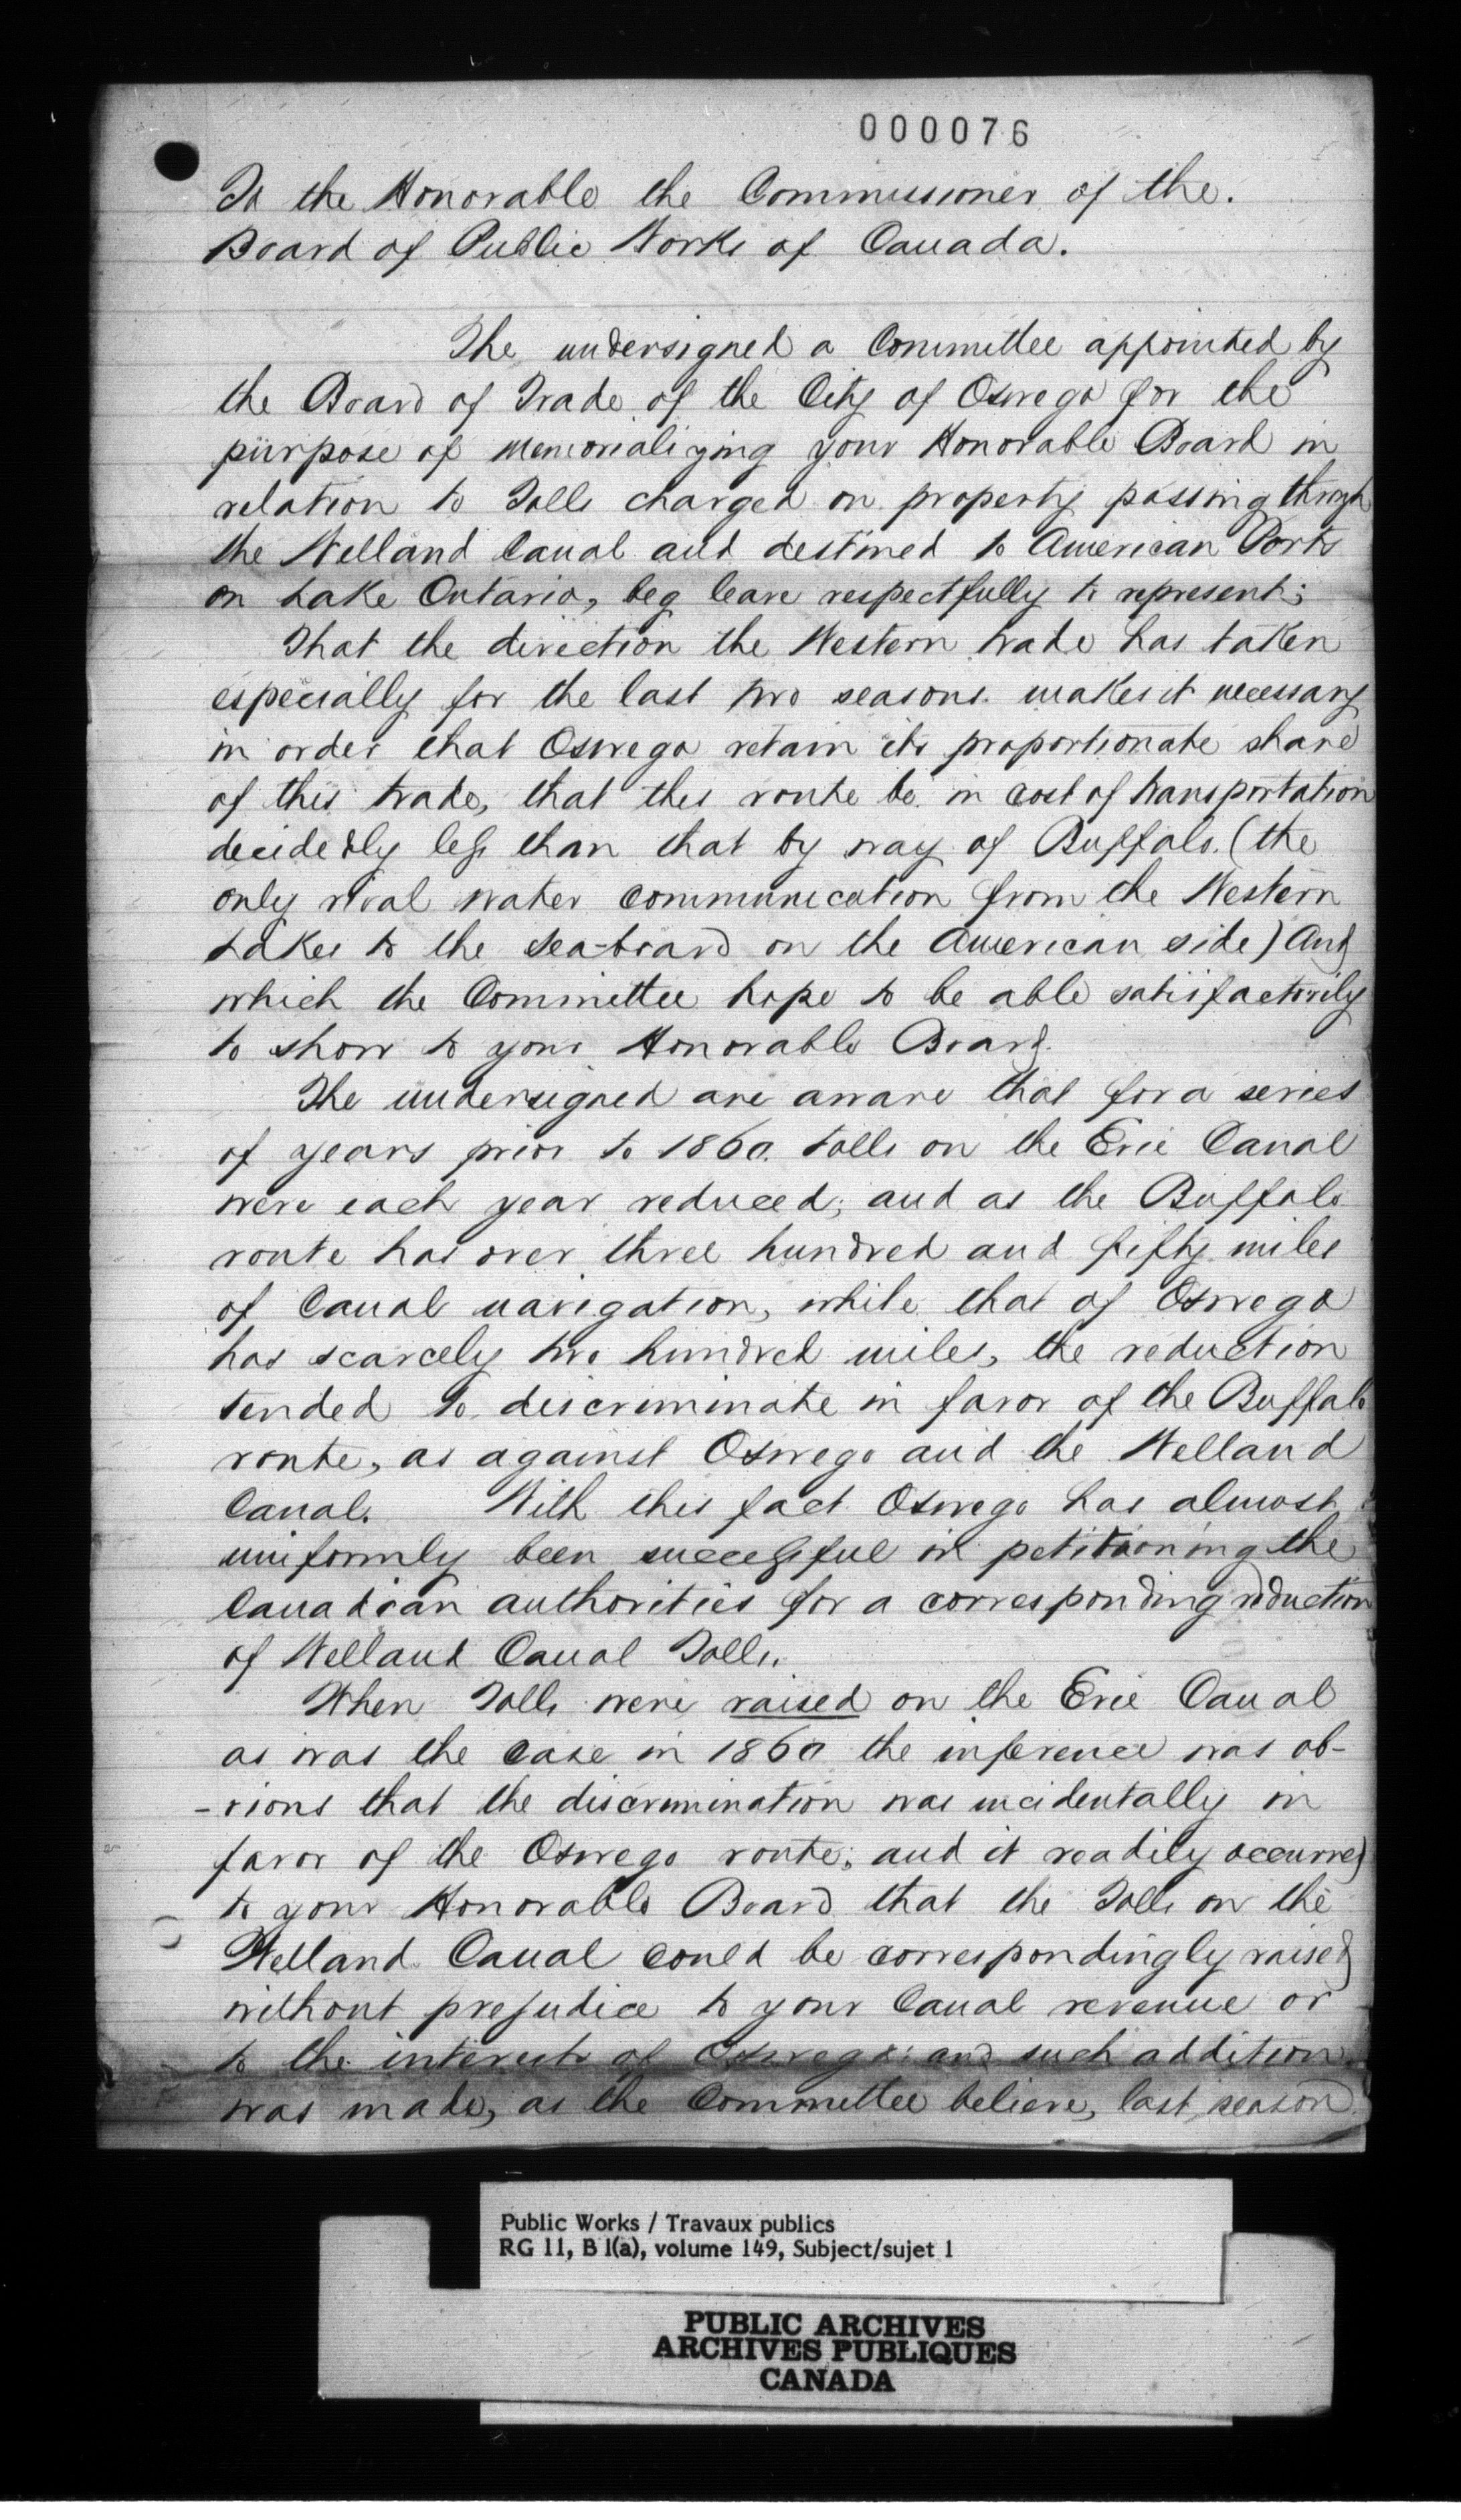 000076
To the Honorable the Commissioner of the.
Board of Public Works of Canada.
The undersigned a Committee appointed by
the Board of Trade of the City of Oswego for the
purpose of memorializing your Honorable Board in
relation to Tolls charged on property passing through
the Welland Canal and destined to American Ports
on Lake Ontario, beg leave respectfully to represent;
That the direction the Western trade has taken
especially for the last two seasons makes it necessary
in order that Oswego retain its proportionate share
of this trade, that this route be in cost of transportation
decidedly less than that by way of Buffalo. (the
only rival water communication from the Western
Lakes to the Sea-board on the American side) And
which the Committee hope to be able satisfactorily
to show to your Honorable Board.
The undersigned are aware that for a series
of years prior to 1860. tolls on the Erie Canal
were each year reduced; and as the Buffalo
route has over three hundred and fifty miles
of Canal navigation, while that of Oswego
has scarcely two hundred miles, the reduction
tended to discriminate in favor of the Buffalo
route, as against Oswego and the Welland
Canal. With this fact Oswego has almost
uniformly been successful in petitioning the
Canadian authorities for a corresponding reduction
of Welland Canal Tolls.
When Tolls were raised on the Erie Canal
as was the case in 1860 the inference was ob-
-vious that the discrimination was incidentally in
favor of the Oswego route; and it readily occurred
to your Honorable Board that the Tolls on the
Welland Canal could be correspondingly raised
without prejudice to your Canal revenue or
to the interests of Oswego: and such addition
was made, as the Committee believe, last season
Public Works / Travaux publics
RG 11, B 1(a), volume 149, Subject/sujet 1
PUBLIC ARCHIVES
ARCHIVES PUBLIQUES
CANADA